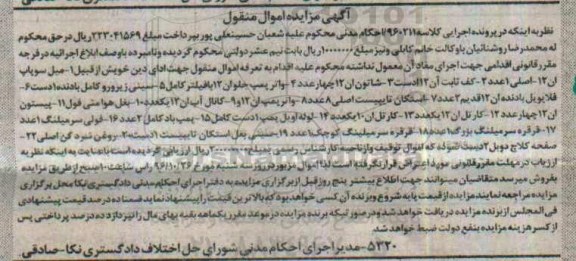 آگهی مزایده اموال منقول
نظر به اینکه در پرونده اجرایی کلاسه ۹۶۰۲۱۱ احکام مدنی محکوم علیه شعبان حسینعلی پور بپرداخت مبلغ ۲۲۳۰۴۱۵۶۹ ریال در حق محکوم
له محمدرضا روشنائیان با وکالت خانم کابلی و نیز مبلغ ۱۰۰۰۰۰۰۰ ریال بابت نیم عشر دولتی محکوم گردیده و نامبرده با وصف ابلاغ اجرائیه در فرجه
مقرر قانونی اقدامی جهت اجرای مفاد آن معمول نداشته محکوم علیه اقدام به تعرفه اموال منقول جهت ادای دین خویش از قبیل ۱- میل سوپاپ
ان۱۲- اصلی ۱ عدد ۲- کف ثابت آن ۱۲ دست ۳- شاتون ان ۱۲ چهار عدد ۴- واتر پمپ جلوان ۱۲ با فیلتر کامل ۵- سینی زیر و رو کامل بادنده ۱ دست ۶-
قلاویل بادنده ان ۱۲ قدیم ۲ عدد ۷- استکان تایپیست اصلی ۸ عدد ۸- واتر پمپ ان ۱۲ و ۹- کانال آب ان ۱۲ یکعدد ۱۰- بغل هوا متی فول ۱۱- پیستون
ان ۱۲ چهار عدد ۱۲- کارتل ان ۱۲ یکعدد ۱۳- کارتل ان ۱۰ یکعدد ۱۴- لوله اویل پمپ ۱ دست کامل ۱۵- پمپ باد کامل ۲ عدد ۱۶- فولی سرمیلنگ ۱ عدد
۱۷- قرقره سرمیلنگ بزرگ ۱ عدد ۱۸- قرقره سرمیلینگ کوچک ۱ عدد ۱۹- جنسی بغل استکان تایپیست ۱ دست ۲۰- روغن نمره کن اصلی ۲۲-
صفحه کلاچ دوبل ۲ دست نموده که اموال توقیف و از ناحیه کارشناس رسمی بمبلغ ۲۰۰۰۰۰۰۰ ریال ارزیابی گردیده است با عنایت به اینکه نظریه
ارزیاب در مهلت مقرر قانونی مورد اعتراض قرار نگرفته است لذا اموال مزبور در روز سه شنبه مورخ ۹۶/۱۰/۲۶ راس ساعت ۱۰ صبح از طریق مزایده
بفروش میرسد متقاضیان میتوانند جهت اطلاع بیشتر پنج روز قبل از برگزاری مزایده به دفتر اجرای احکام مدنی دادگستری نکا محل برگزاری
مزایده مراجعه نمایند مزایده از قیمت پایه شروع و برنده آن کسی خواهد بود که بالاترین قیمت را پیشنهاد نماید ضمنا ده درصد قیمت پیشنهادی
فی المجلس از برنده مزایده دریافت خواهد شد و در صورتیکه برنده مزایده در موعد مقرر یکماهه بقیه بهای مال را نپردازد ده درصد پرداختی پس
از کسر هزینه مزایده بنفع دولت ضبط خواهد شد.
۵۳۲۰- مدیر اجرای احکام مدنی شورای حل اختلاف دادگستری نکا- صادقی